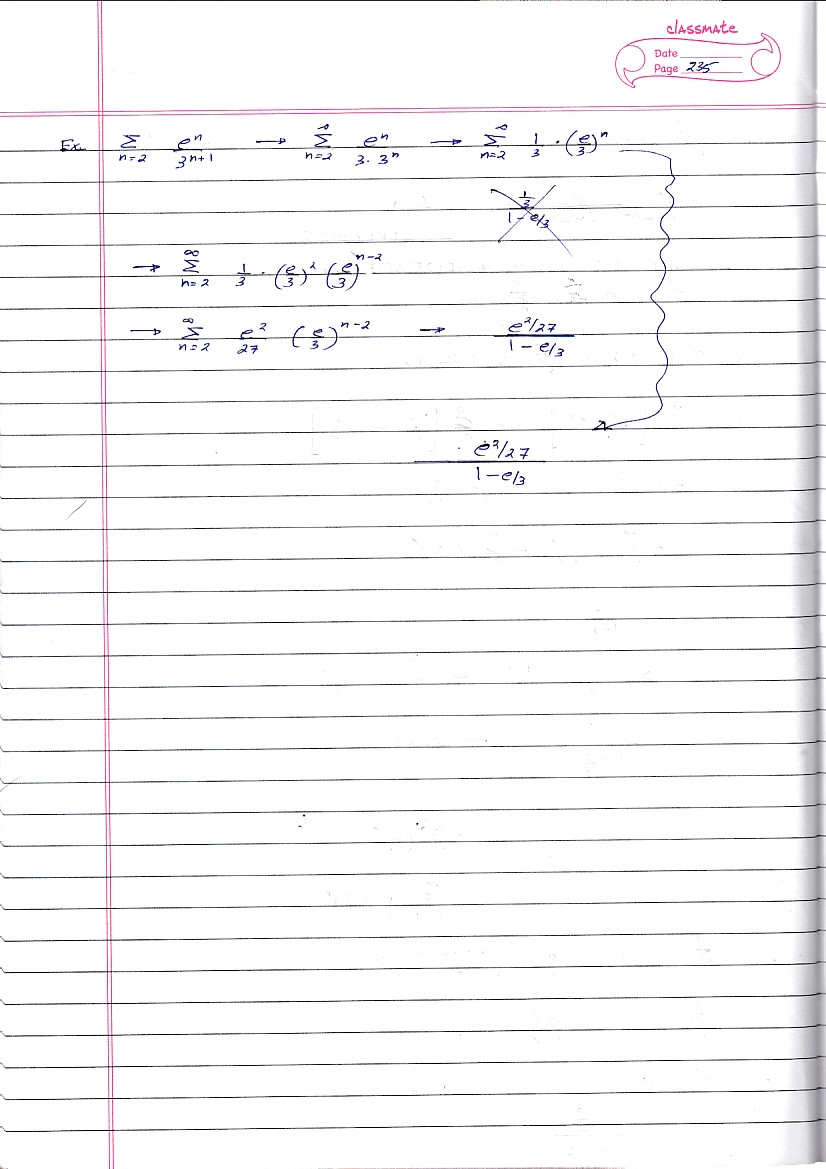 classmate
Date
Page 235
Ex. Σ n=2 e^n / 3^(n+1) → ∞ Σ n=2 e^n / 3·3^n → ∞ Σ n=2 1/3 · (e/3)^n
1/3 / 1 - e/3
→ ∞ Σ n=2 1/3 · (e/3)^2 (e/3)^(n-2)
→ ∞ Σ n=2 e^2/27 (e/3)^(n-2) → e^2/27 / 1 - e/3
e^2/27 / 1 - e/3